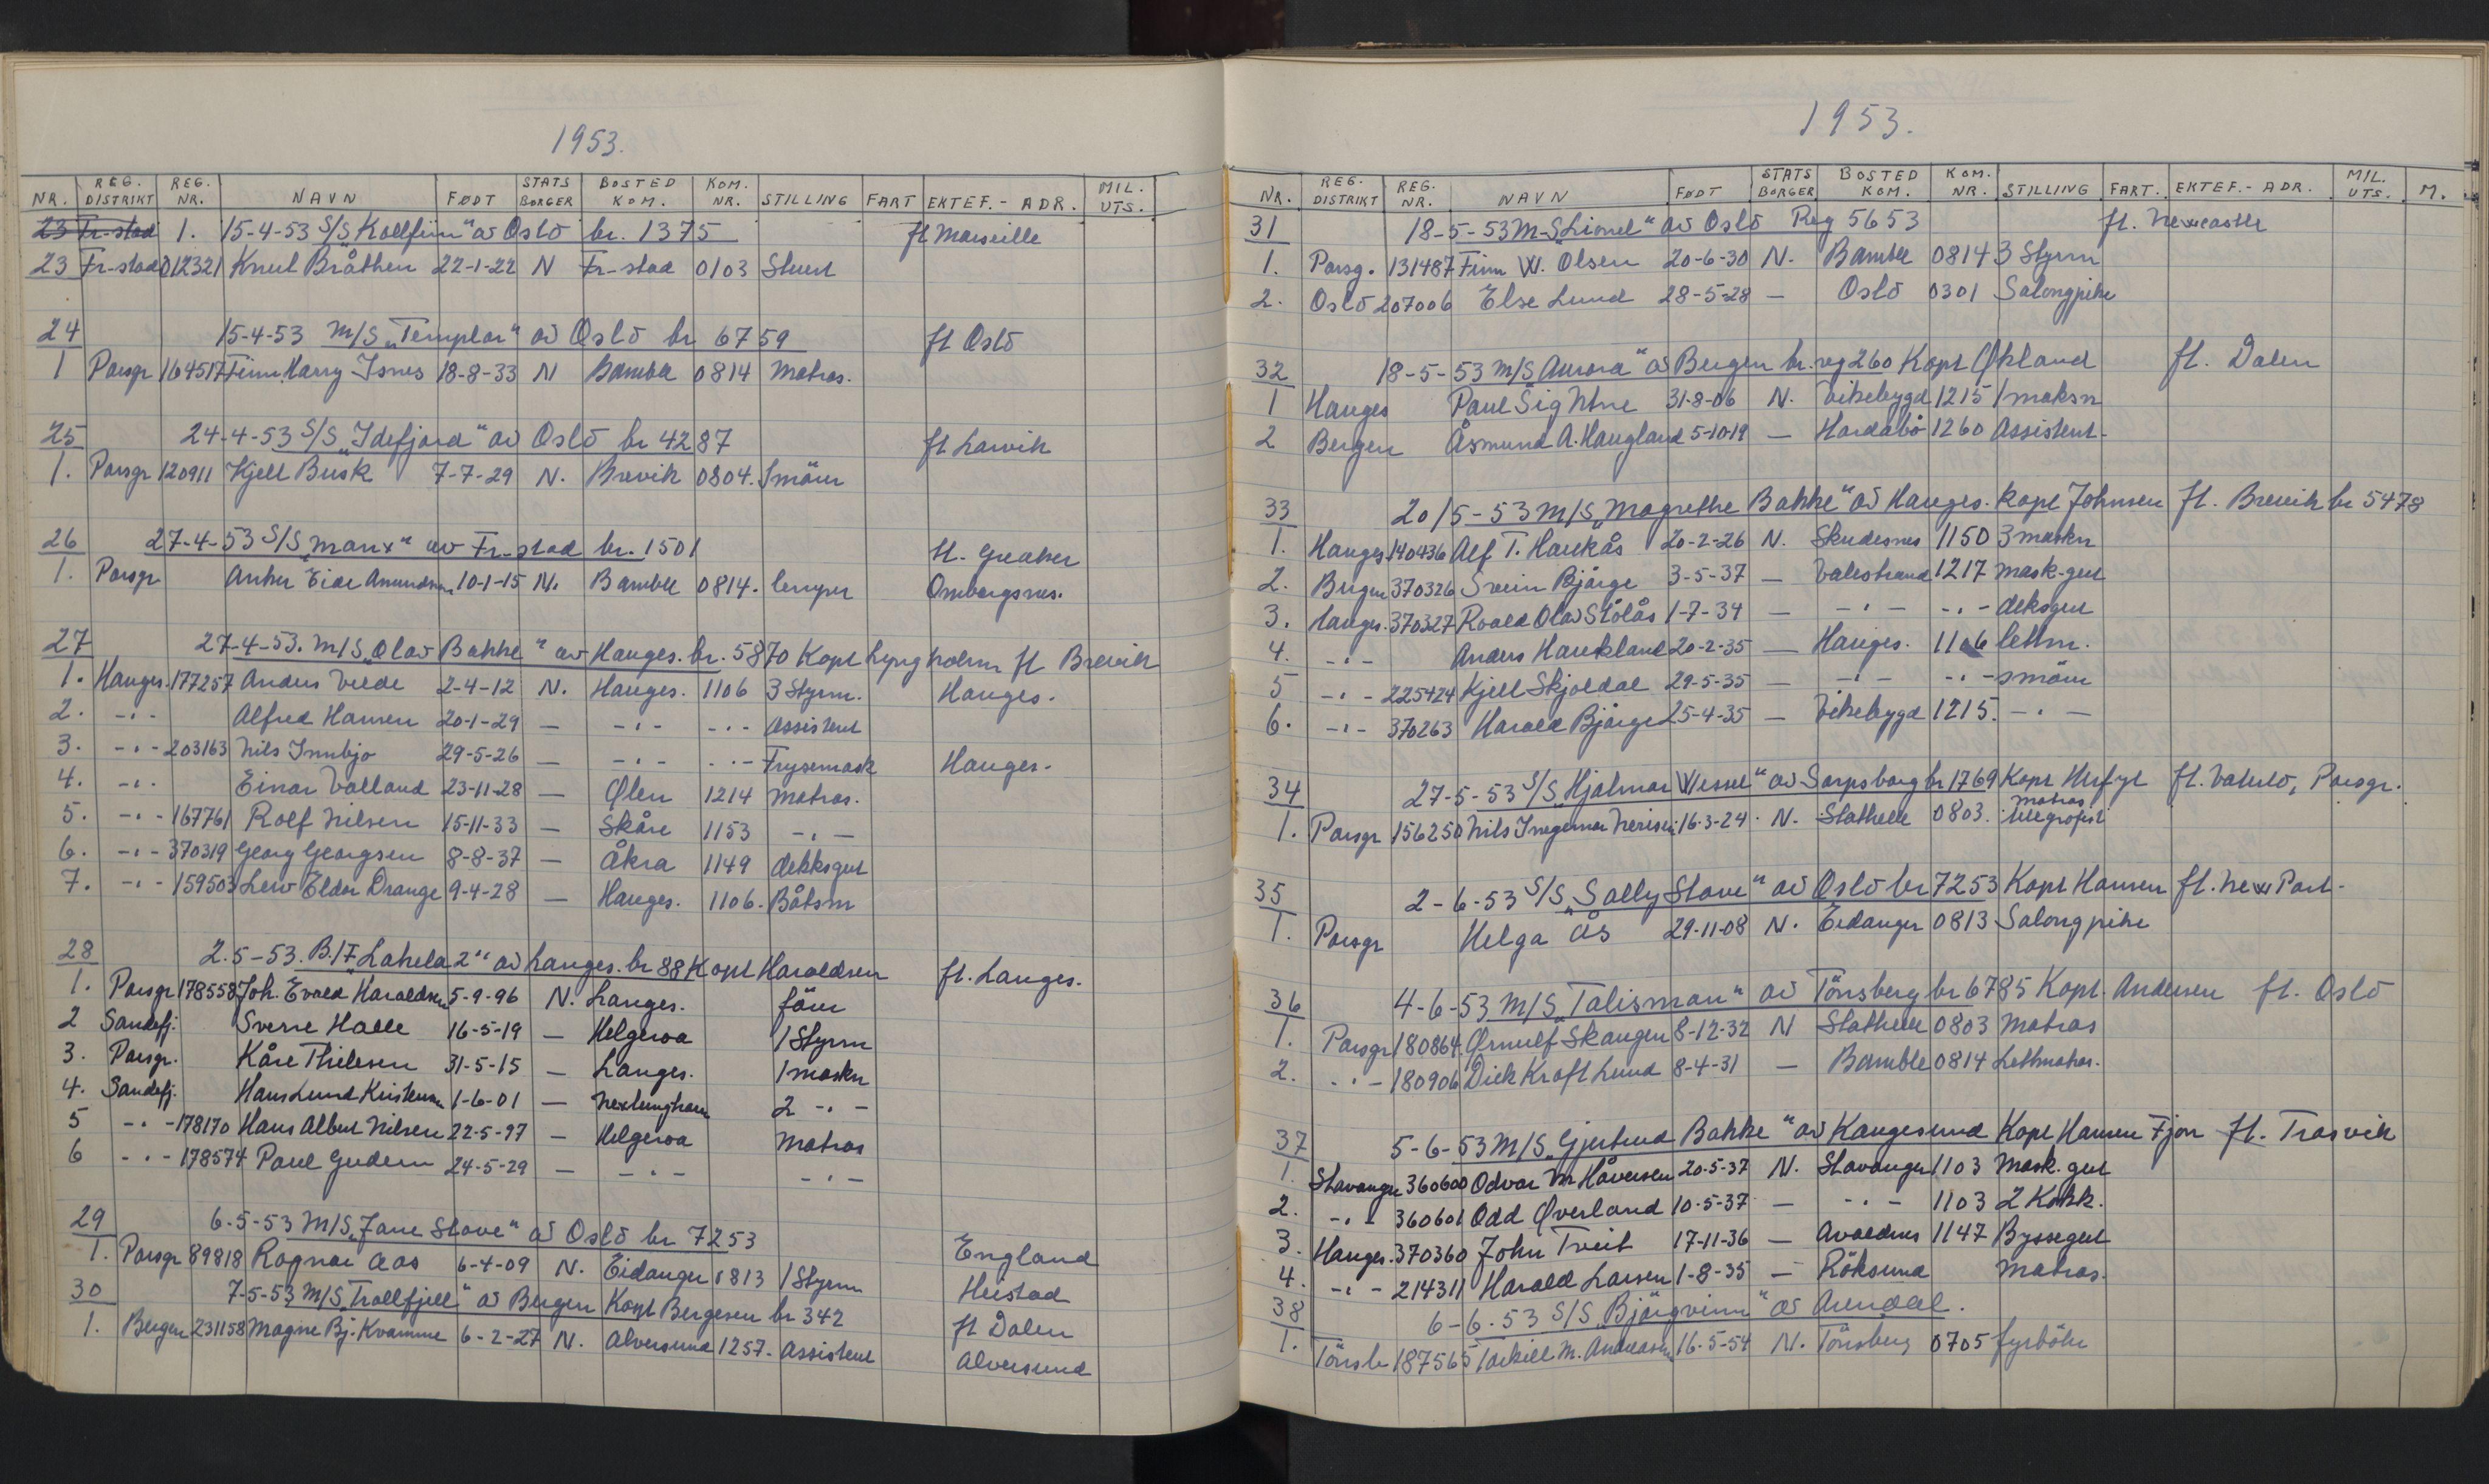 1953.
NR. REG. DISTRIKT REG. NR. NAVN FØDT STATS BORGER BOSTED KOM. KOM. NR. STILLING FART EKTEF.- ADR. MIL. UTS.
23 Fr-stad 1. 15-4-53 S/S Kollfinn" av Oslo br. 1375 ft Marseille
23 Fr-stad 012321 Knut Bråthen 22-1-22 N Fr-stad 0103 Stuert
24 15-4-53 M/S „Templar" av Oslo br 6759 ft Oslo
1 Porsgr 164517 Finn Harry Isnes 18-8-33 N Bamble 0814 Matros.
25 24-4-53 S/S „Idefjord" av Oslo br 4287 ft Larvik
1. Porsgr 120911 Kjell Busk 7-7-29 N. Brevik 0804. Smörer
26 27-4-53 S/S „Marix" av Fr-stad br. 1501 ft. Greaker
1. Porsgr Anker Eidar Amundsen 10-1-15 N. Bamble 0814. lemper
27 27-4-53. M/S „Olav Bakke" av Hauges. br. 5870 Kapt Lyngholm ft Brevik
1. Hauges. 177257 Anders Veede 2-4-12 N. Hauges. 1106 3 Styrm. Hauges.
2. -"- Alfred Hansen 20-1-29 — -"- -"- Assistent
3. -"- 203163 Nils Innbjo 29-5-26 — -"- -"- Frysemask Hauges.
4. -"- Einar Valland 23-11-28 — Ølen 1214 Matros.
5. -"- 167761 Rolf Nilsen 15-11-33 — Skåre 1153 -"-
6. -"- 370319 Georg Georgsen 8-8-37 — Åkra 1149 dekksgut
7. -"- 159503 Leiv Eldar Drange 9-4-28 — Hauges. 1106. Båtsm
28 2.5-53. B/F „Lahela 2" av Langes. br 88 Kapt Haraldsen ft. Langes.
1. Porsgr 178558 Joh. Evald Haraldsen 5-9-96 N. Langes. förer
2 Sandefj. Sverre Halle 16-5-19 — Helgeroa 1 Styrm
3. Porsgr. Kåre Thilesen 31-5-15 — Langes. 1 maskn
4. Sandefj. Hans Lund Kristensen 1-6-01 — Nevlunghavn 2 -"-
5 -"- 178170 Hans Albert Nilsen 22-5-97 — Helgeroa Matros
6 -"- 178574 Paul Gudem 24-5-29 — -"- -"-
29 6-5-53 M/S „Jane Stove" av Oslo br 7253
1. Porsgr 89818 Ragnar Aas 6-4-09 N. Eidanger 0813 1 Styrm England
30 7-5-53 M/S „Trollfjell" av Bergen Kapt Bergesen br 342 Heistad
1. Bergen 231158 Magne Bj. Kvamme 6-2-27 N. Alversund 1257. Assistent ft Dalen
Alversund
1953.
NR. REG. DISTRIKT REG. NR. NAVN FØDT STATS BORGER BOSTED KOM. KOM. NR. STILLING FART. EKTEF.- ADR. MIL. UTS. M.
31 18-5-53 M-S „Lionel" av Oslo Reg 5653 ft. Newcastle
1. Porsg. 131487 Finn W. Olsen 20-6-30 N. Bamble 0814 3 Styrm
2. Oslo 207006 Else Lund 28-5-28 — Oslo 0301 Salongpike
32 18-5-53 M/S „Aurora" av Bergen br. reg 260 Kapt Økland ft. Dalen
1 Hauges Paul Sig Utne 31-8-06 N. Vikebygd 1215 1 maksn
2 Bergen Åsmund A. Haugland 5-10-19 — Hordabö 1260 Assistent-
33 20/5-53 M/S „Magrethe Bakke" av Hauges. Kapt Johnsen ft. Brevik br 5478
1. Hauges. 140436 Alf T. Haukås 20-2-26 N. Skudesnes 1150 3 maskn
2. Bergen 370326 Svein Bjørge 3-5-37 — Valestrand 1217 Mask-gut
3. Hauges. 370327 Roald Olav Stølås 1-7-34 — -"- -"- deksgut
4. -"- Anders Haukland 20-2-35 — Hauges. 1106 lettm.
5 -"- 225424 Kjell Skjoldal 29-5-35 — -"- -"- smörer
6. -"- 370263 Harald Bjørge 25-4-35 — Vikebygd 1215. -"-
34 27-5-53 S/S „Hjalmar Wessel" av Sarpsborg br 1769 Kapt ft. Porsgr.
1. Porsgr 156250 Nils Ingemar 16-3-24 N. Stathelle 0803. matros telegrafist
35 2-6-53 S/S „Sally Stove" av Oslo br 7253 Kapt Hansen ft. New Port-
1. Porsgr Helga Ås 29-11-08 N. Eidanger 0813 Salongpike
36 4-6-53 M/S „Talisman" av Tönsberg br 6785 Kapt. Andersen ft. Oslo
1. Porsgr 180864 Ørnulf Skaugen 8-12-32 N Stathelle 0803 Matros
2. -"- 180906 Dick Kroft Lund 8-4-31 — Bamble 0814 Lettmatros.
37 5-6-53 M/S „Gjertrud Bakke" av Haugesund Kapt Hansen Fjon ft. Trosvik
1. Stavanger 360600 Odvar M Håversen 20-5-37 N. Stavanger 1103 Mask. gut
2. -"- 360601 Odd Øverland 10-5-37 — -"- 1103 2 Kokk.
3. Hauges. 370360 John Tveit 17-11-36 — Avaldsnes 1147 Byssegut
4. -"- 214311 Harald Larsen 1-8-35 — Röksund Matros.
38 6-6-53 S/S „Björgvinn" av Arendal.
1. Tönsb 187565 Torkill M. Andreassen 16-5-54 N. Tönsberg 0705 fyrböter